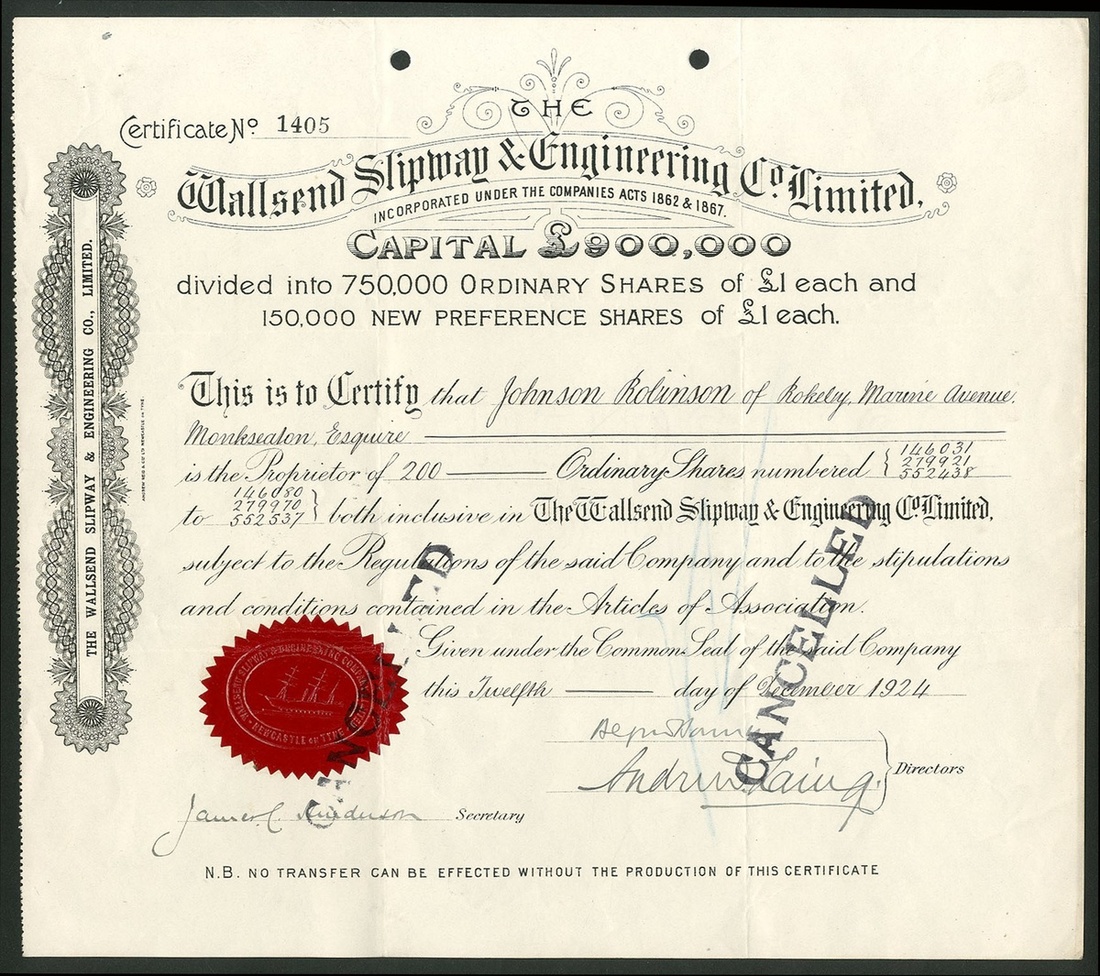 Certificate No. 1405
THE
Wallsend Slipway & Engineering Co. Limited,
INCORPORATED UNDER THE COMPANIES ACTS 1862 & 1867.
CAPITAL £900,000
divided into 750,000 ORDINARY SHARES of £1 each and
150,000 NEW PREFERENCE SHARES of £1 each.
This is to Certify that Johnson Robinson of Rokeby, Marine Avenue,
Monkseaton, Esquire
146031
is the Proprietor of 200 Ordinary Shares numbered { 279921
552438
146080
to 279970 } both inclusive in The Wallsend Slipway & Engineering Co. Limited,
552537
subject to the Regulations of the said Company and to the stipulations
and conditions contained in the Articles of Association.
Given under the Common Seal of the said Company
this Twelfth day of December 1924
Andrew Laing
Directors
James C. Anderson Secretary
N.B. NO TRANSFER CAN BE EFFECTED WITHOUT THE PRODUCTION OF THIS CERTIFICATE
THE WALLSEND SLIPWAY & ENGINEERING CO., LIMITED.
WALLSEND SLIPWAY & ENGINEERING COMPANY LIMITED
NEWCASTLE ON TYNE
CANCELLED
CANCELLED